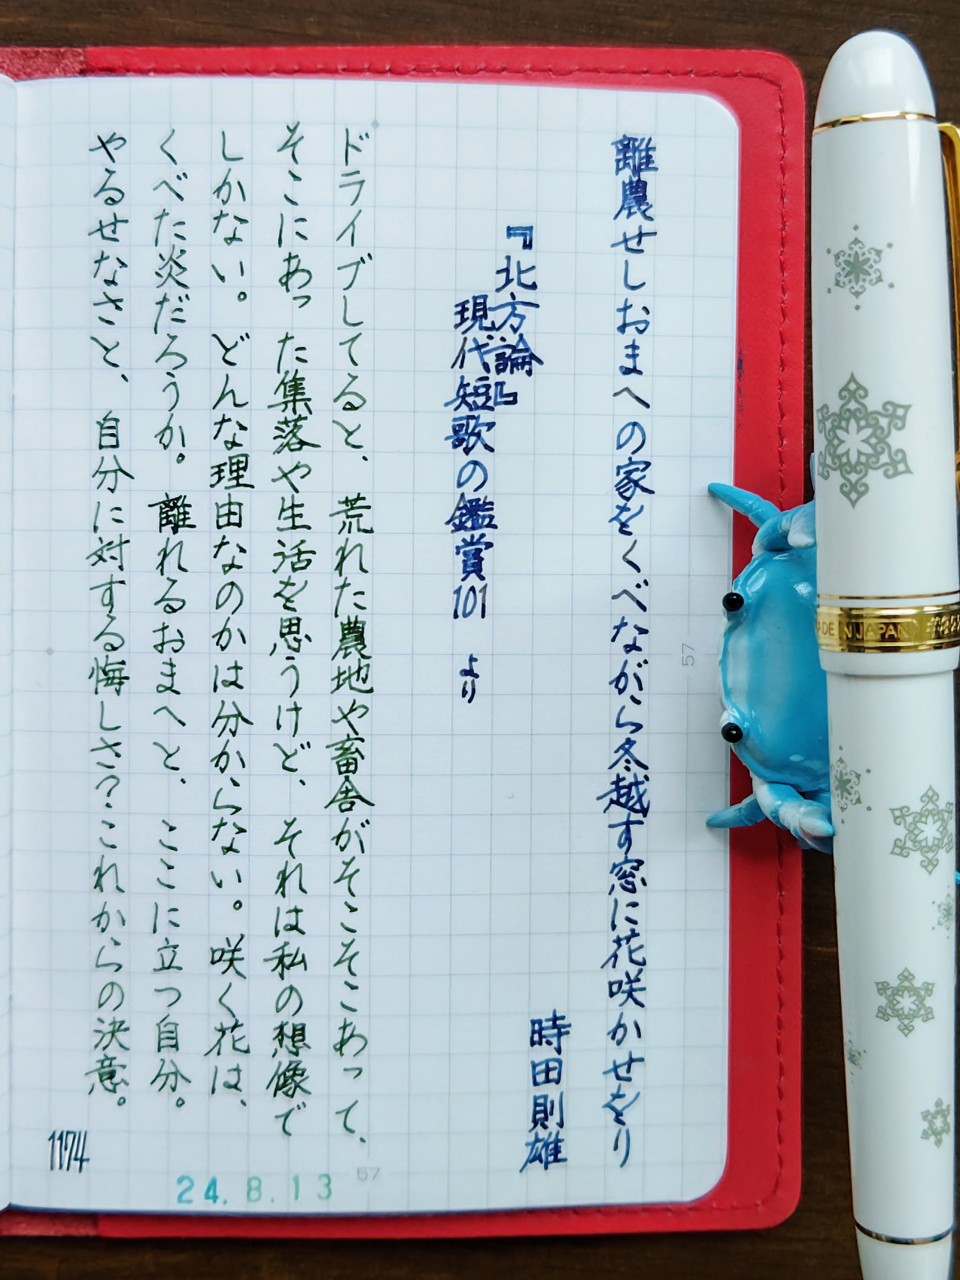 離農せしおまへの家をくべながら冬越す窓に花咲かせをり
時田則雄
『北方論』
現代短歌の鑑賞101 より
ドライブしてると、荒れた農地や畜舎がそこそこあって、
そこにあった集落や生活を思うけど、それは私の想像で
しかない。どんな理由なのかは分からない。咲く花は、
くべた炎だろうか。離れるおまへと、ここに立つ自分。
やるせなさと、自分に対する悔しさ？これからの決意。
1174
24.8.13
57
57
MADE IN JAPAN